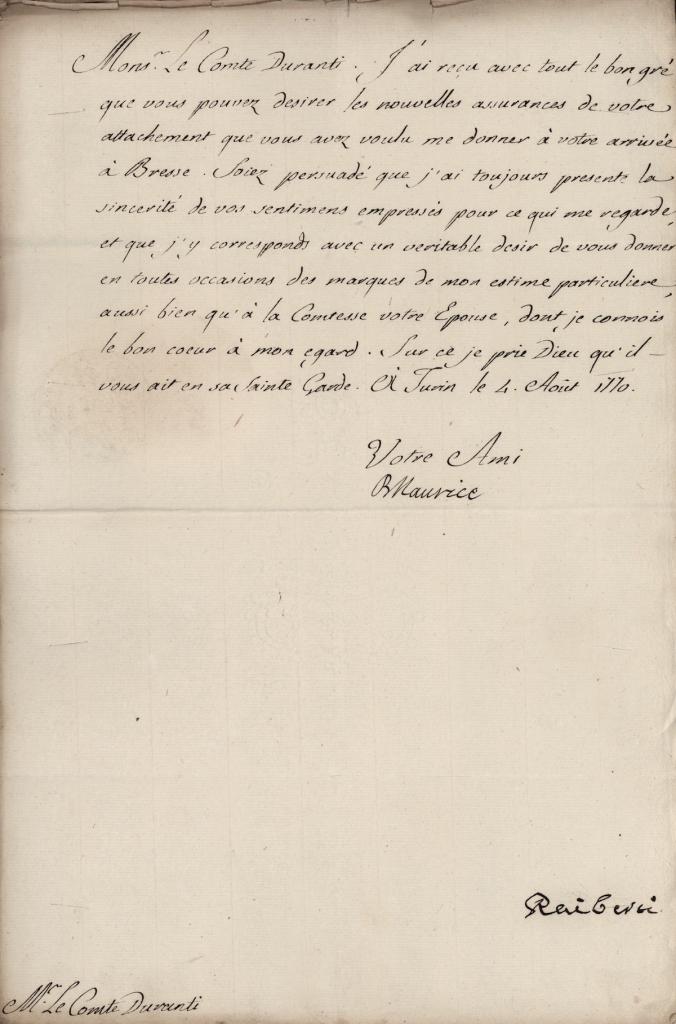 Mons.r Le Comte Duranti. J'ai reçu avec tout le bon gré
que vous pouvez desirer les nouvelles assurances de votre
attachement que vous avez voulu me donner à votre arrivée
à Bresse. Soiez persuadé que j'ai toujours presente la
sincerité de vos sentimens empressés pour ce qui me regarde,
et que j'y corresponds avec un veritable desir de vous donner
en toutes occasions des marques de mon estime particuliere,
aussi bien qu'à la Comtesse votre Epouse, dont je connois
le bon coeur à mon egard. Sur ce je prie Dieu qu'il —
vous ait en sa Sainte Garde. À Turin le 4. Août 1770.
Votre Ami
BMaurice
Raiberti
Mr. Le Comte Duranti